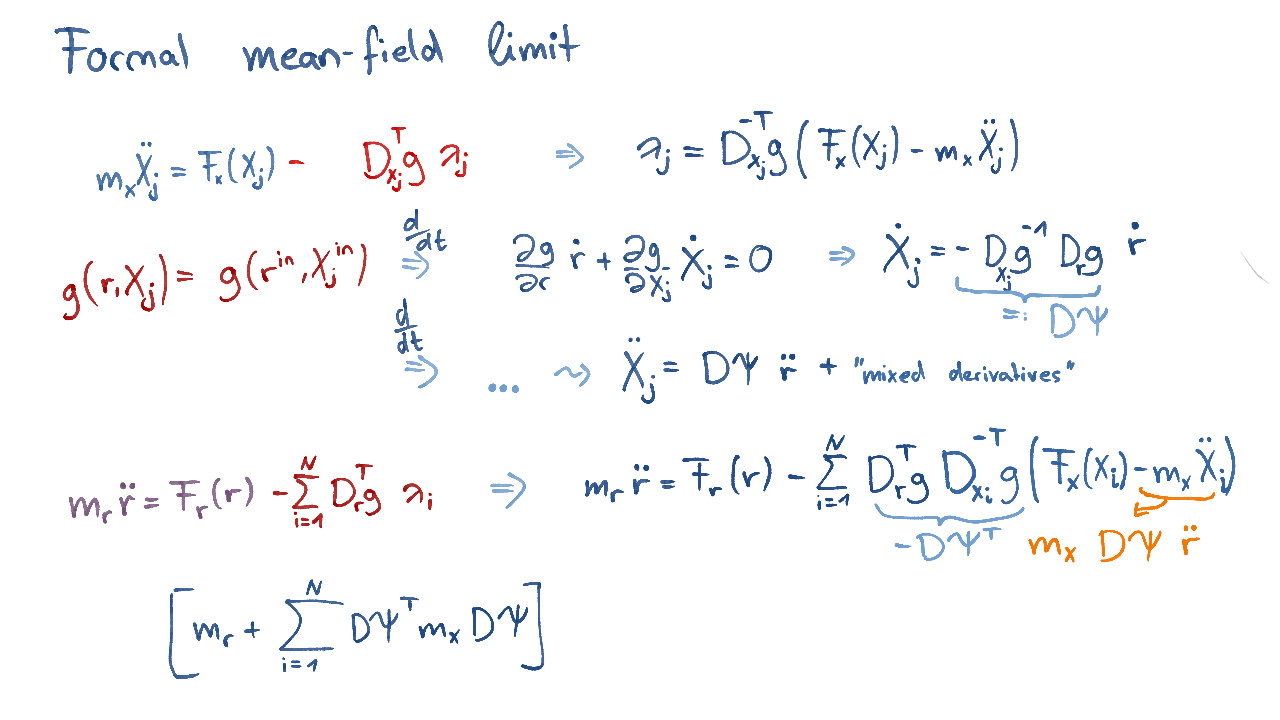 Formal mean-field limit
m_x Ẍ_j = F_x(X_j) - D_{x_j}^T g λ_j ⇒ λ_j = D_{x_j}^{-T} g (F_x(X_j) - m_x Ẍ_j)
g(r, X_j) = g(r^{in}, X_j^{in}) d/dt ⇒ ∂g/∂r ṙ + ∂g/∂X_j Ẋ_j = 0 ⇒ Ẋ_j = - D_{x_j} g^{-1} D_r g ṙ
=: DΨ
d/dt ⇒ ... ⇝ Ẍ_j = DΨ r̈ + "mixed derivatives"
m_r r̈ = F_r(r) - ∑_{i=1}^N D_r^T g λ_i ⇒ m_r r̈ = F_r(r) - ∑_{i=1}^N D_r^T g D_{x_i}^{-T} g (F_x(X_i) - m_x Ẍ_i)
-DΨ^T m_x DΨ r̈
[m_r + ∑_{i=1}^N DΨ^T m_x DΨ]